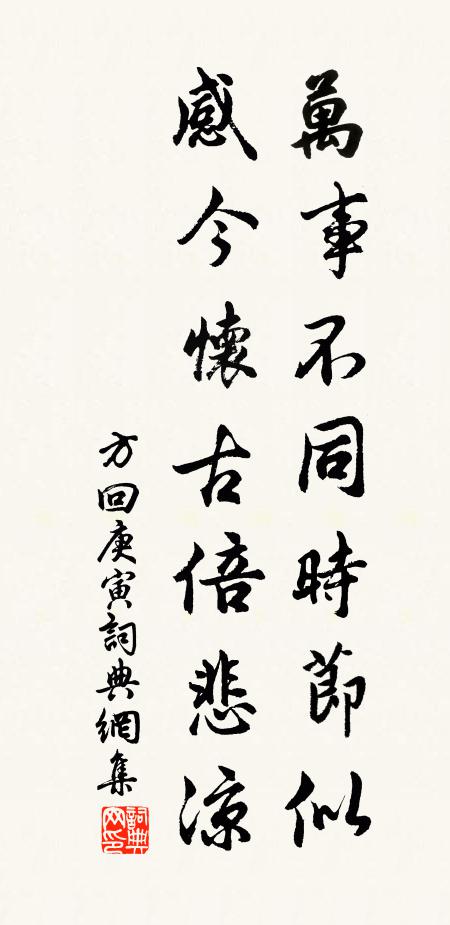 萬事不同時節似
感今懷古倍悲涼
方回庚寅詞典網集
詞典網印